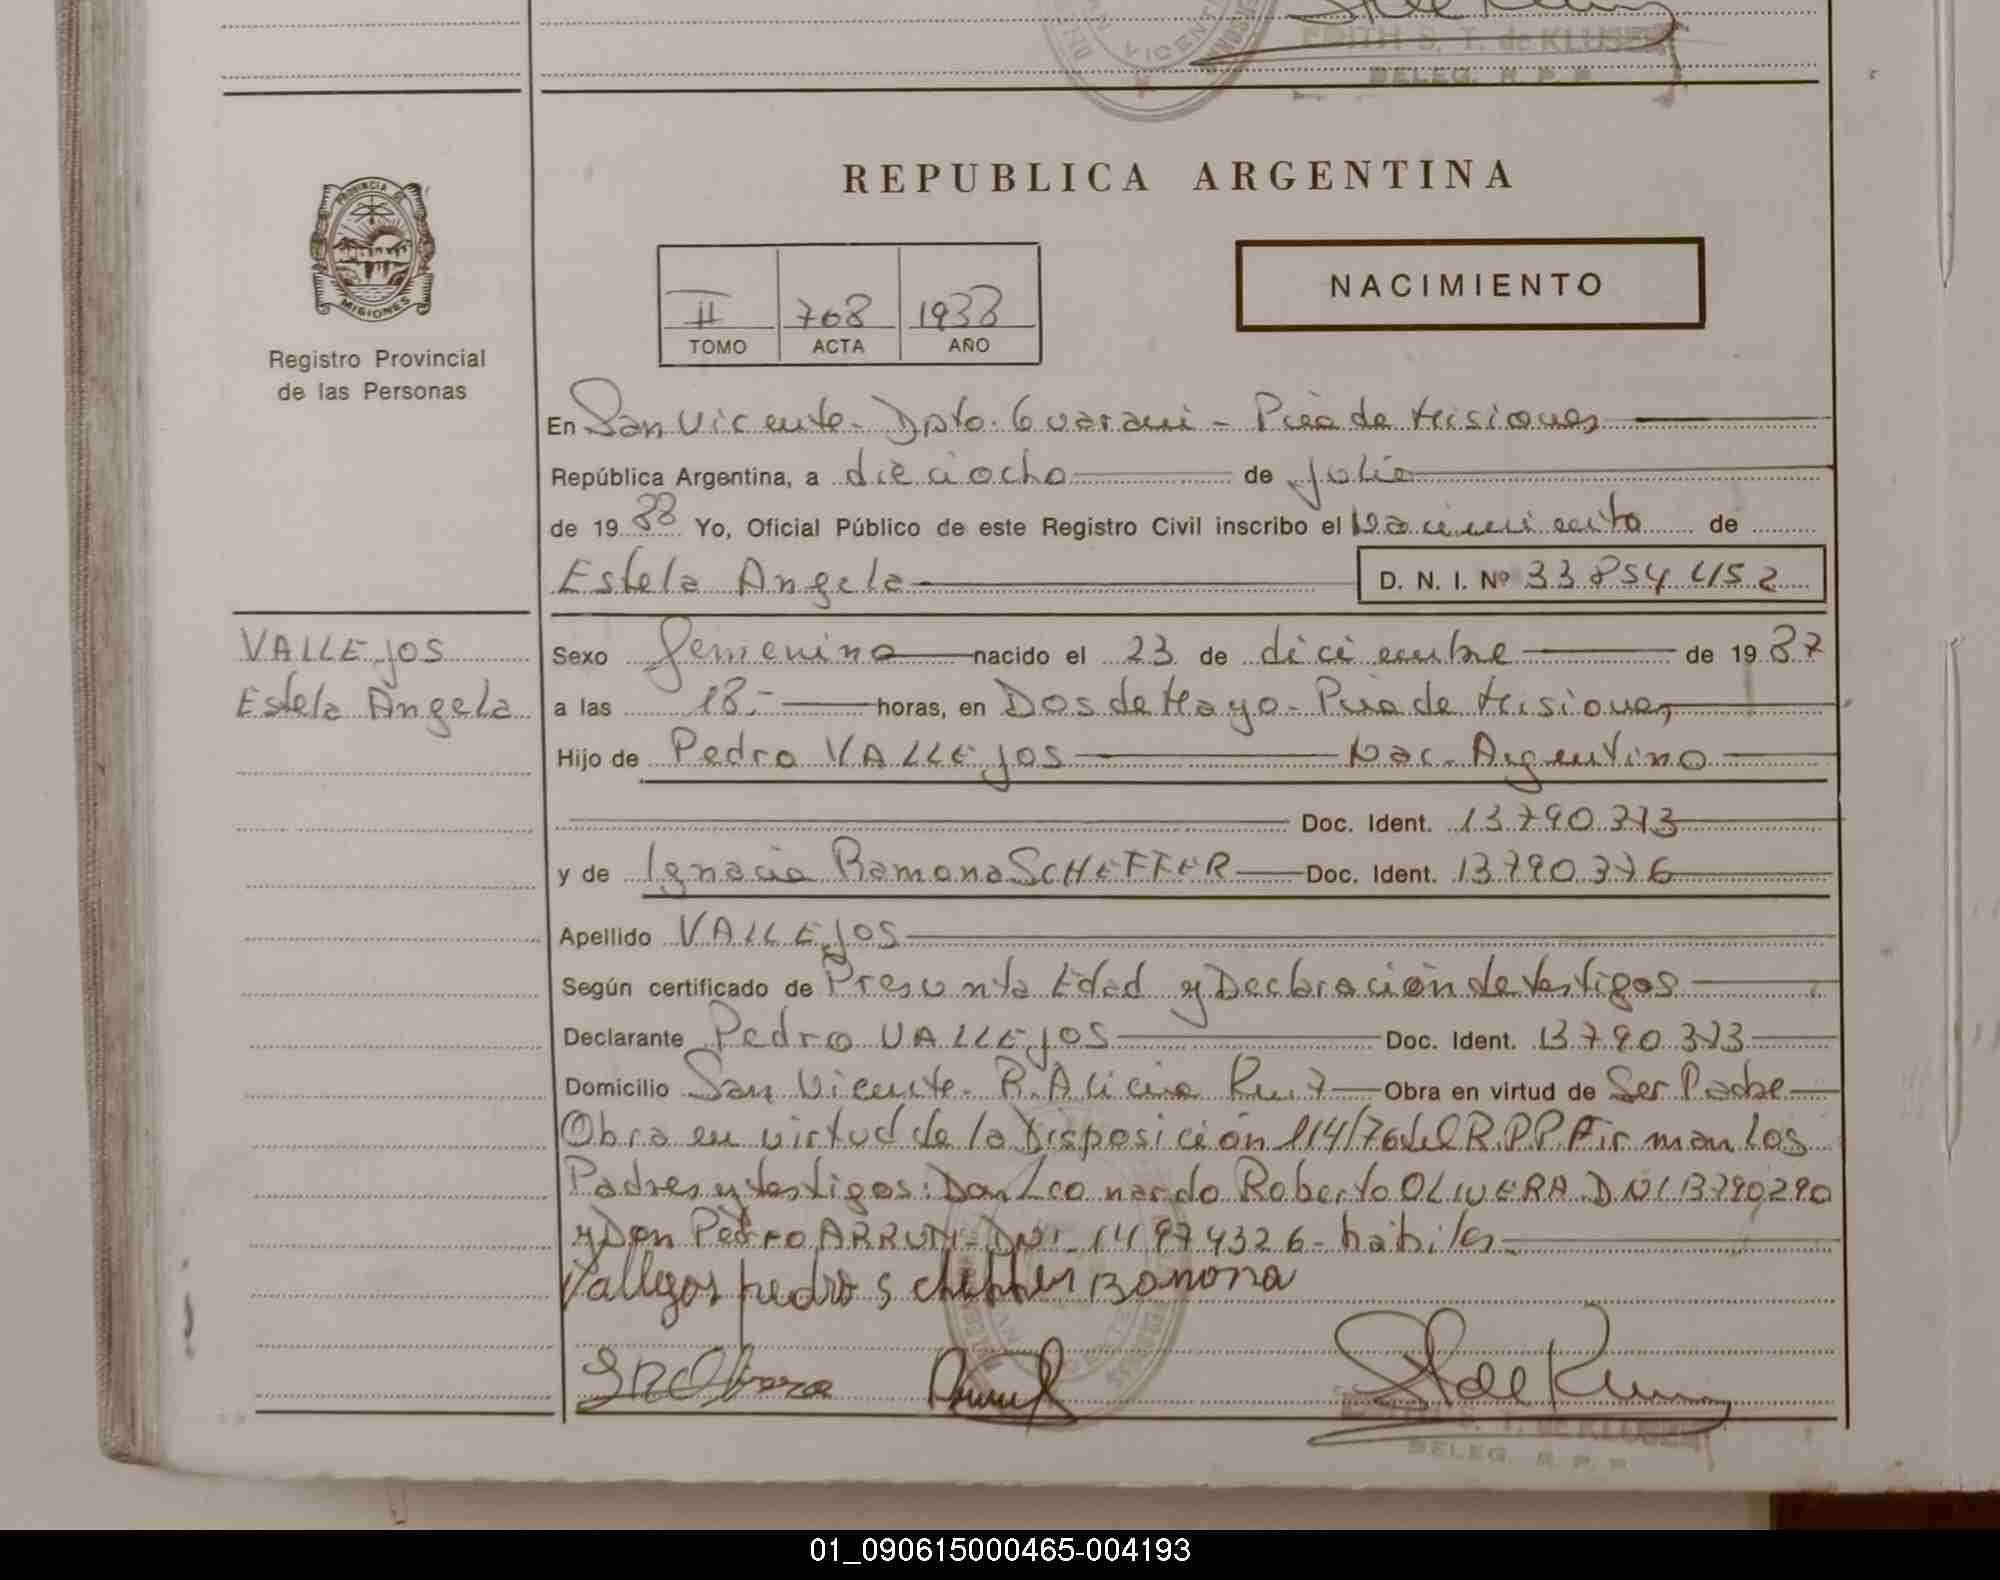 EDITH S. T. de KLUSER
DELEG. R. P. P.
VICENTE
PROVINCIA DE
MISIONES
Registro Provincial
de las Personas
REPUBLICA ARGENTINA
II 768 1988
TOMO ACTA AÑO
NACIMIENTO
En San Vicente - Dpto. Guarani - Pcia de Misiones
República Argentina, a dieciocho de Julio
de 19 88 Yo, Oficial Público de este Registro Civil inscribo el Nacimiento de
Estela Angela D. N. I. Nº 33 854 452
VALLEJOS
Estela Angela
Sexo femenino nacido el 23 de diciembre de 19 87
a las 18.- horas, en Dos de Mayo - Pcia de Misiones
Hijo de Pedro VALLEJOS Nac. Argentino
Doc. Ident. 13.790.373
y de Ignacia Ramona SCHEFFER Doc. Ident. 13790376
Apellido VALLEJOS
Según certificado de Presunta Edad y Declaración de testigos
Declarante Pedro VALLEJOS Doc. Ident. 13790.373
Domicilio San Vicente - P. Alicia Ruiz Obra en virtud de Ser Padre
Obra en virtud de la Disposición 114/76 del R.P.P. Firman Los
Padres y testigos: Don Leonardo Roberto OLIVERA DNI 13790290
y Don Pedro ARRUTI - DNI - 14974326 - habiles
Vallegos pedro Scheffer Ramona
EDITH S. T. de KLUSER
DELEG. R. P. P.
01_090615000465-004193